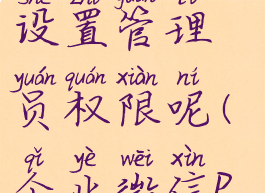 设置管理
yuán quán xiàn ní
员权限呢(
qǐ yè wēi xìn
企业微信